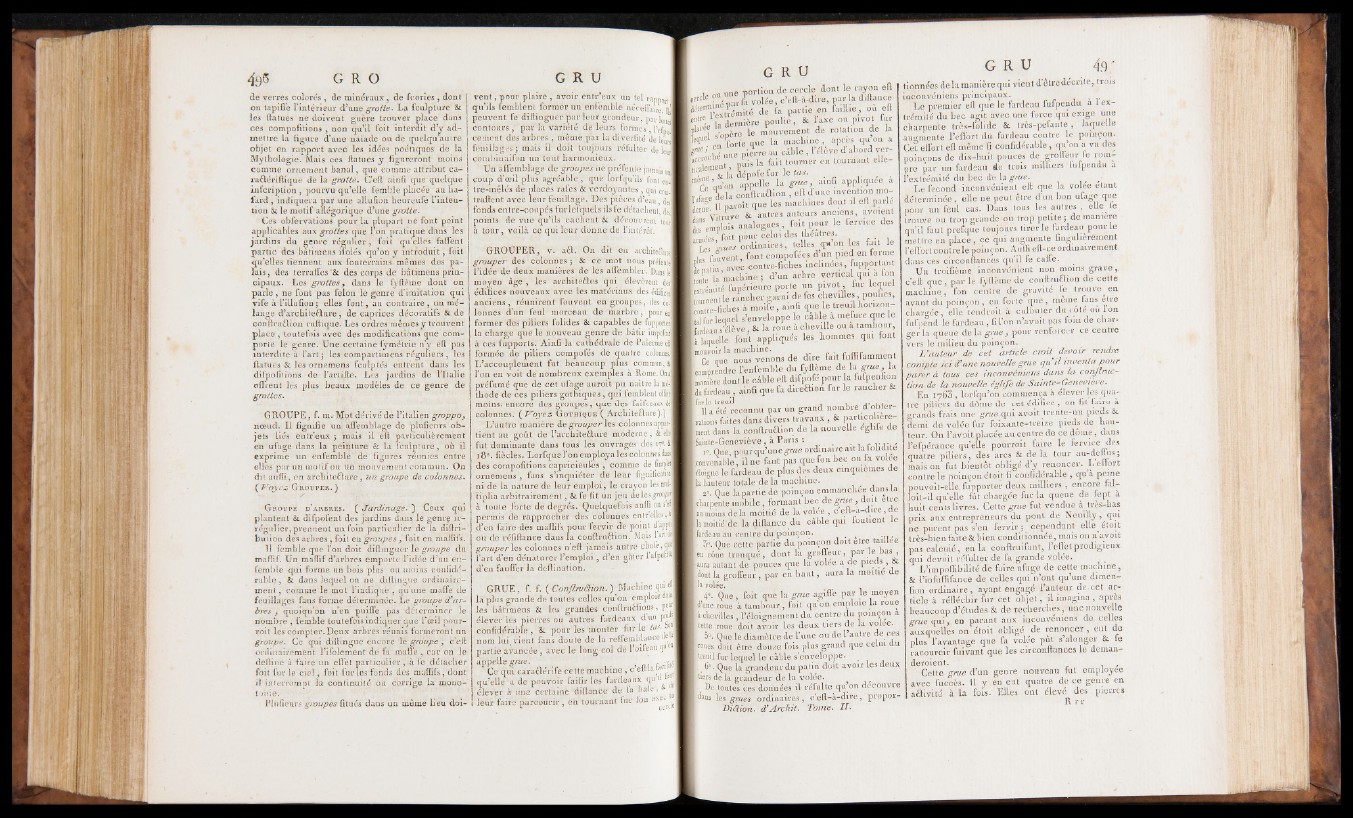 496 GRO
de verres colorés, de minéraux, de scories, dont
on tapisse l'intérieur d'une grotte. La sculpture &
les statues ne doivent guère trouver place dans
ces compositions, non qu'il soit interdit d'y ad-
mettre la figure d'une naïade ou de quelqu'autre
objet en rapport avec les idées poétiques de la
Mythologie. Mais ces statues y figureront moins
comme ornement banal, que comme attribut ca-
ractéristique de la grotte. C'est ainsi que quelque
inscription, pourvu qu'elle semble placée au ha-
sard, indiquera par une allusion heureuse l'inten-
tion & le motif allégorique d'une grotte.
Ces observations pour la plupart ne sont point
applicables aux grottes que l'on pratique dans les
jardins du genre régulier, soit qu'elles fassent
partie des bâtimens isolés qu'on y introduit, soit
qu'elles tiennent aux souterrains mêmes des pa-
lais, des terrasses & des corps de bâtimens prin-
cipaux. Les grottes, dans le système dont on
parle, ne sont pas selon le genre d'imitation qui
vise à l'illusion; elles sont, au contraire, un mé-
lange d'architecture, de caprices décoratifs & de
construction rustique. Les ordres mêmes y trouvent
place, toutefois avec des modifications que com-
porte le genre. Une certaine symétrie n'y est pas
interdite à l'art; les compartimens réguliers, les
statues & les ornemens sculptés entrent dans les
dispositions de l'artiste. Les jardins de l'Italie
offrent les plus beaux modèles de ce genre de
grottes.
GROUPE, s. m. Mot dérivé de l'italien groppo,
nœud. Il signifie un assemblage de plusieurs ob-
jets liés entr'eux; mais il est particulièrement
en usage dans la peinture & la sculpture, où il
exprime un ensemble de figures réunies entre
elles par un motif ou un mouvement commun. On
dit aussi, en architecture, un groupe de colonnes.
(Voyez GROUPER.)
GROUPE D'ARBRES. (Jardinage.) Ceux qui
plantent & disposent des jardins dans le genre ir-
régulier, prennent un soin particulier de la distri-
bution des arbres, soit en groupes, soit en massifs.
Il semble que l'on doit distinguer le groupe du
massif. Un massif d'arbres emporte l'idée d'un en-
semble qui forme un bois plus ou moins considé-
rable, & dans lequel on ne distingue ordinaire-
ment, comme le mot l'indique, qu'une masse de
feuillages sans forme déterminée. Le groupe d'ar-
bres, quoiqu'on n'en puisse pas déterminer le
nombre, semble toutefois indiquer que l'œil pour-
roit les compter. Deux arbres réunis formeront un
groupe. Ce qui distingue encore le groupe, c'est
ordinairement l'isolement de sa masse, car on le
destine à faire un effet particulier, à se détacher
soit sur le ciel, soit sur les fonds des massifs, dont
il interrompt la continuité ou corrige la mono-
tonie.
Plusieurs groupes situés dans un même lieu doi-
GRU
vent, pour plaire, avoir entr'eux un tel rapport,
qu'ils semblent former un ensemble nécessaire. Ils
peuvent se distinguer par leur grandeur, par leurs
contours, par la variété de leurs formes, l'espa-
cement des arbres, même par la diversité de leurs
feuillages; mais il doit toujours résulter de leur
combinaison un tout harmonieux.
Un assemblage de groupes ne présente jamais un
coup d'œil plus agréable, que lorsqu'ils sont en-
tre-mêlés de places rases & verdoyantes, qui con-
trastent avec leur feuillage. Des pièces d'eau, des
fonds entre-coupés sur lesquels ils se détachent, des
points de vue qu'ils cachent & découvrent tour
à tour, voilà ce qui leur donne de l'intérêt.
GROUPER, v. act. On dit en architecture
grouper des colonnes; & ce mot nous présente
l'idée de deux manières de les assembler. Dans le
moyen âge, les architectes qui élevèrent des
édifices nouveaux avec les matériaux des édifices
anciens, réunirent souvent en groupes, des co-
lonnes d'un seul morceau de marbre, pour en
former des piliers solides & capables de supporter
la charge que le nouveau genre de bâtir imposoit
à ces supports. Ainsi la cathédrale de Palerme est
formée de piliers composés de quatre colonnes.
L'accouplement fut beaucoup plus commun, &
l'on en voit de nombreux exemples à Rome. On a
présumé que de cet usage auroit pu naître la mé-
thode de ces piliers gothiques, qui semblent offrir
moins encore des groupes, que des faisceaux de
colonnes. (Voyez GOTHIQUE (Architecture).)
L'autre manière de grouper les colonnes appar-
tient au goût de l'architecture moderne, & elle
fut dominante dans tous les ouvrages des 17e. &
18e. siècles. Lorsque l'on employa les colonnes dans
des compositions capricieuses, comme de simples
ornemens, sans s'inquiéter de leur signification
ni de la nature de leur emploi, le crayon les mul-
tiplia arbitrairement, & se fit un jeu de les grouper
à toute sorte de degrés. Quelquefois aussi on s'est
permis de rapprocher des colonnes entr'elles, &
d'en faire des massifs pour servir de point d'appui
ou de résistance dans la construction. Mais l'art de
grouper les colonnes n'est jamais autre chose, que
l'art d'en dénaturer l'emploi, d'en gâter l'aspect &
d'en fausser la destination.
GRUE, s. f. (Construction.) Machine qui est
la plus grande de toutes celles qu'on emploie dans
les bâtimens & les grandes constructions, pour
élever les pierres ou autres fardeaux d'un poids
considérable, & pour les monter sur le tas. Son
nom lui vient sans doute de la ressemblance de sa
partie avancée, avec le long col de l'oiseau qu'on
appelle grue.
Ce qui caractérise cette machine, c'est la facilité
qu'elle a de pouvoir saisir les fardeaux qu'il faut
élever à une certaine distance de sa base, & de
leur faire parcourir, en tournant sur son
GRU
cercle ou une portion de cercle dont le rayon est
déterminé par sa volée, c'est-à-dire, par la distance
entre l'extrémité de sa partie en saillie, où est
placée la dernière poulie, & l'axe ou pivot sur
lequel s'opère le mouvement de rotation de la
grue; en sorte que la machine, après qu'on a
accroché une pierre au câble, l'élève d'abord ver-
ticalement, puis la fait tourner en tournant elle-
même, & la dépose sur le tas.
Ce qu'on appelle la grue, ainsi appliquée à
l'usage de la construction, est d'une invention mo-
derne. Il paroît que les machines dont il est parlé
dans Vitruve & autres auteurs anciens, avoient
des emplois analogues, soit pour le service des
armées, soit pour celui des théâtres.
Les grues ordinaires, telles qu'on les fait le
plus souvent, sont composées d'un pied en forme
de patin, avec contre-fiches inclinées, supportant
toute la machine; d'un arbre vertical qui à son
extrémité supérieure porte un pivot, sur lequel
tournent le rancher garni de ses chevilles, poulies,
contre-fiches à moise, ainsi que le treuil horizon-
tal sur lequel s'enveloppe le câble à mesure que le
fardeau s'élève, & la roue à cheville ou à tambour,
à laquelle sont appliqués les hommes qui font
mouvoir la machine.
Ce que nous venons de dire fait suffisamment
comprendre l'ensemble du système de la grue, la
manière dont le câble est disposé pour la suspension
du fardeau, ainsi que sa direction sur le rancher &
sur le treuil.
Il a été reconnu par un grand nombre d'obser-
vations faites dans divers travaux, & particulière-
ment dans la construction de la nouvelle église de
Sainte-Geneviève, à Paris :
1°. Que, pour qu'une grue ordinaire ait la solidité
convenable, il ne faut pas que son bec ou sa volée
éloigne le fardeau de plus des deux cinquièmes de
la hauteur totale de la machine.
2°. Que la partie de poinçon emmanchée dans la
charpente mobile, formant bec de grue, doit être
au moins de la moitié de la volée, c'est-à-dire, de
la moitié de la distance du câble qui soutient le
fardeau au centre du poinçon.
3°. Que cette partie du poinçon doit être taillée
en cône tronqué, dont la grosseur, par le bas,
aura autant de pouces que la volée a de pieds, &
dont la grosseur, par en haut, aura la moitié de
la volée.
4°. Que, soit que la grue agisse par le moyen
d'une roue à tambour, soit qu'on emploie la roue
à chevilles, l'éloignement du centre du poinçon à
cette roue doit avoir les deux tiers de la volée.
5°. Que le diamètre de l'une ou de l'autre de ces
roues doit être douze fois plus grand que celui du
treuil sur lequel le câble s'enveloppe.
6°. Que la grandeur du patin doit avoir les deux
tiers de la grandeur de la volée.
De toutes ces données il résulte qu'on découvre
dans les grues ordinaires, c'est-à-dire, propor-
Diction. d'Archit. Tome. II.
GRU 49
tionnées de la manière qui vient d'être décrite, trois
inconvéniens principaux.
Le premier est que le fardeau suspendu à l'ex-
trémité du bec agit avec une force qui exige une
charpente très-solide & très-pesante, laquelle
augmente l'effort du fardeau contre le poinçon.
Cet effort est même si considérable, qu'on a vu des
poinçons de dix-huit pouces de grosseur se rom-
pre par un fardeau de trois milliers suspendu à
l'extrémité du bec de la grue.
Le second inconvénient est que la volée étant
déterminée, elle ne peut être d'un bon usage que
pour un seul cas. Dans tous les autres, elle se
trouve ou trop grande ou trop petite; de manière
qu'il faut presque toujours tirer le fardeau pour le
mettre en place, ce qui augmente singulièrement
l'effort contre le poinçon. Aussi est-ce ordinairement
dans ces circonstances qu'il se casse.
Un troisième inconvénient non moins grave,
c'est que, par le système de construction de cette
machine, son centre de gravité se trouve en
avant du poinçon, en sorte que, même sans être
chargée, elle tendroit à culbuter du côté où l'on
suspend le fardeau, si l'on n'avoit pas soin de char-
ger la queue de la grue, pour renforcer ce centre
vers le milieu du poinçon.
L'auteur de cet article croit devoir rendre
compte ici d'une nouvelle grue qu'il inventa pour
parer à tous cet inconvéniens dans la construc-
tion de la nouvelle église de Sainte-Geneviève.
En 1763, lorsqu'on commença à élever les qua-
tre piliers du dôme de cet édifice, on fit faire à
grands frais une grue qui avoit trente-un pieds &
demi de volée sur soixante-treize pieds de hau-
teur. On l'avoit placée au centre de ce dôme, dans
l'espérance qu'elle pourroit faire le service des
quatre piliers, des arcs & de la tour au-dessus;
mais on fut bientôt obligé d'y renoncer. L'effort
contre le poinçon étoit si considérable, qu'à peine
pouvoit-elle supporter deux milliers, encore fal-
loit-il qu'elle fût chargée sur la queue de sept à
huit cents livres. Cette grue fut vendue à très-bas
prix aux entrepreneurs du pont de Neuilly, qui
ne purent pas s'en servir; cependant elle étoit
très-bien faite & bien conditionnée, mais on n'avoit
pas calculé, en la construisant, l'effet prodigieux
qui devoit résulter de sa grande volée.
L'impossibilité de faire usage de cette machine,
& l'insuffisance de celles qui n'ont qu'une dimen-
sion ordinaire, ayant engagé l'auteur de cet ar-
ticle à réfléchir sur cet objet, il imagina, après
beaucoup d'études & de recherches, une nouvelle
grue qui, en parant aux inconvéniens de celles
auxquelles on étoit obligé de renoncer, eut de
plus l'avantage que sa volée pût s'alonger & se
racourcir suivant que les circonstances le deman-
deroient.
Cette grue d'un genre nouveau fut employée
avec succès. Il y en eut quatre de ce genre en
activité à la fois. Elles ont élevé des pierres
Rrr